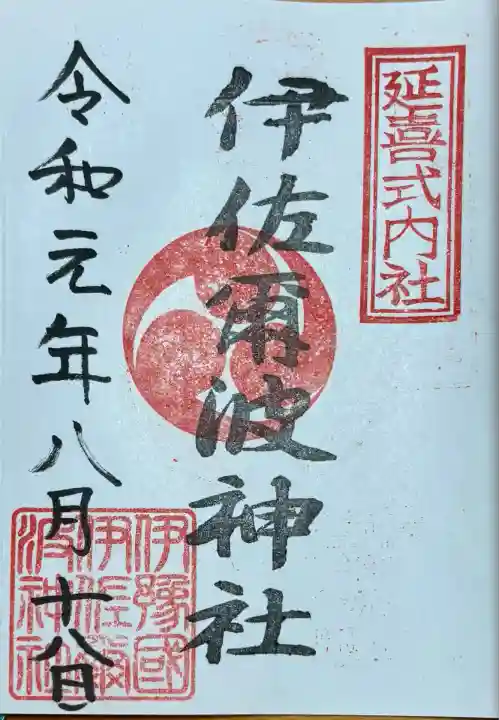 延喜式内社
伊佐爾波神社
令和元年八月十八日
伊豫國
伊佐爾
波神社